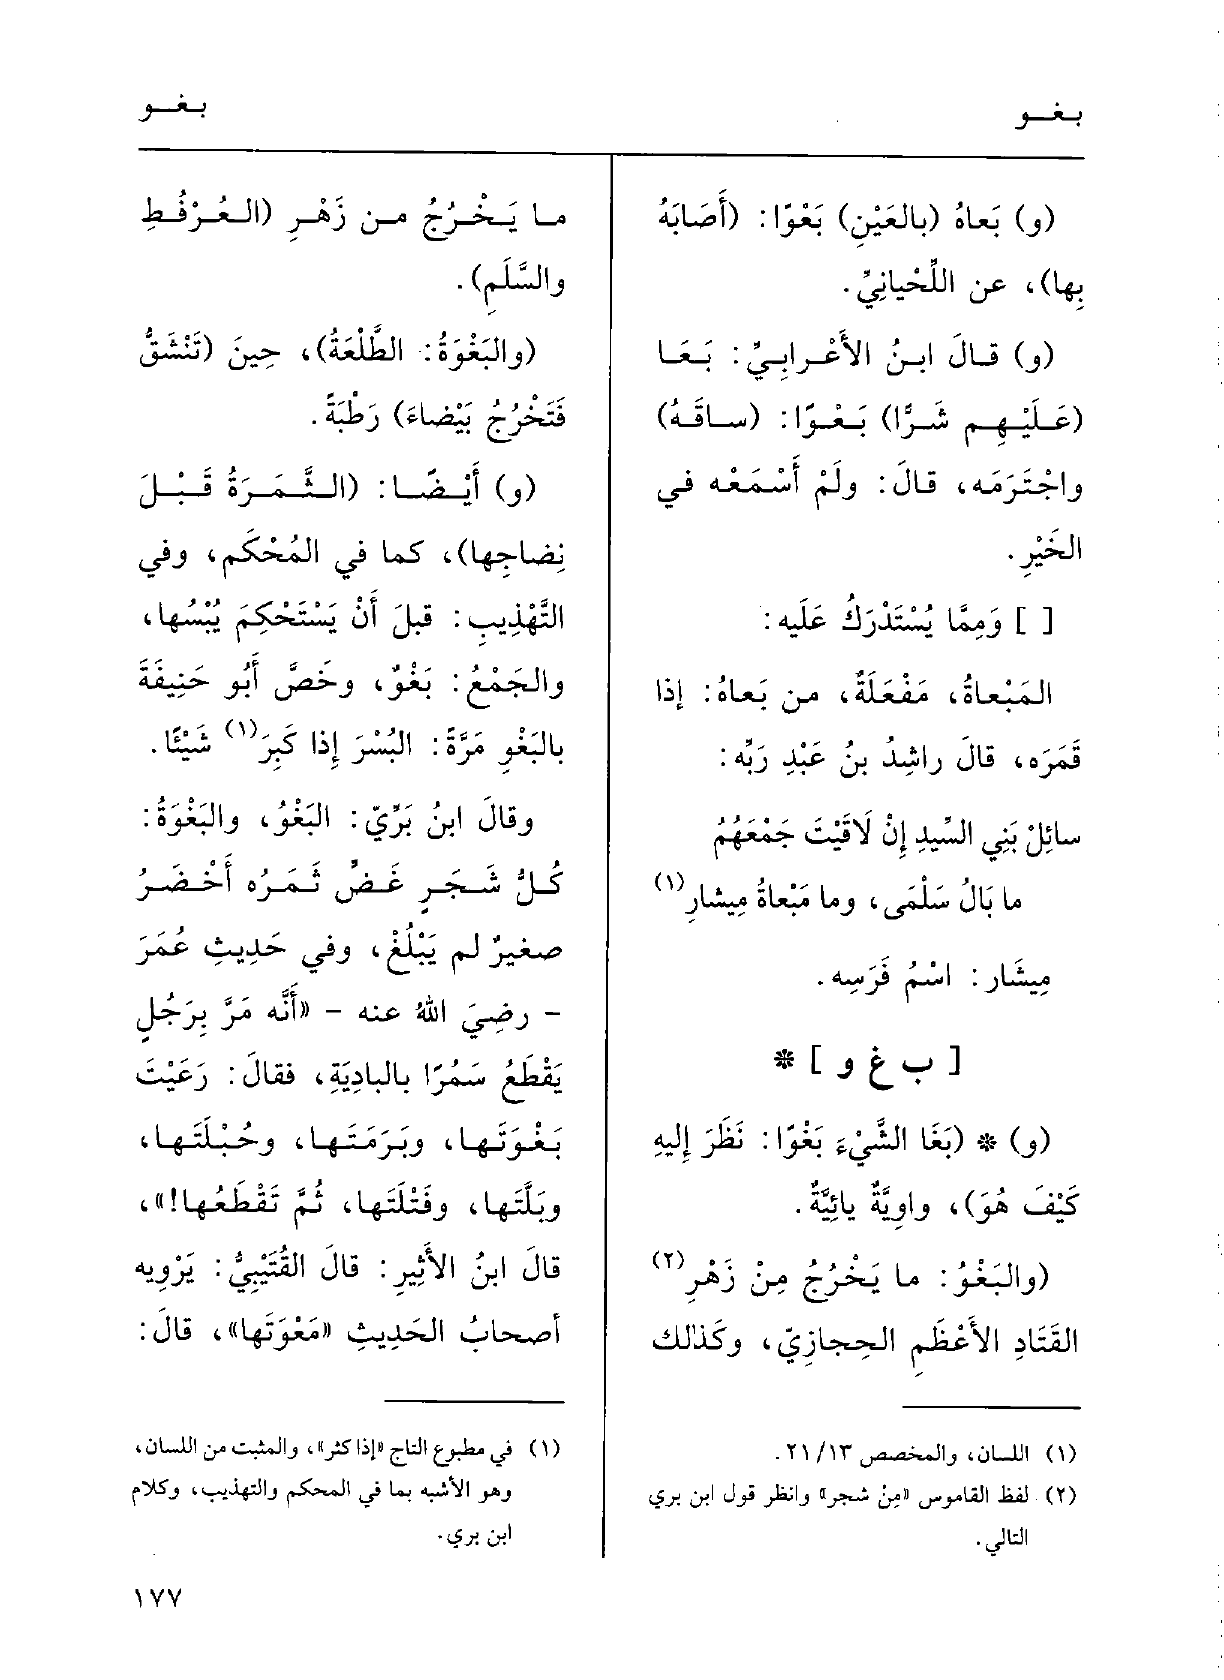 بغو
بغو
(و) بَعاهُ (بالعَيْنِ) بَعْوًا: (أَصَابَهُ
بِها)، عن اللِّحْيانِيِّ.
(و) قالَ ابنُ الأَعْرابِيِّ: بَعَا
(عَلَيْهِم شَرًّا) بَعْوًا: (ساقَهُ)
واجْتَرَمَه، قالَ: ولَمْ أَسْمَعْه في
الخَيْرِ.
[ ] وَمِمَّا يُسْتَدْرَكُ عَلَيه:
المَبْعاةُ، مَفْعَلَةٌ، من بَعاهُ: إذا
قَمَرَه، قالَ راشِدُ بنُ عَبْدِ رَبِّه:
سائِلْ بَنِي السِّيدِ إِنْ لَاقَيْتَ جَمْعَهُمُ
ما بَالُ سَلْمَى، وما مَبْعاةُ مِيشارِ(١)
مِيشَار: اسْمُ فَرَسِه.
[ ب غ و ] *
(و) * (بَغَا الشَّيْءَ بَغْوًا: نَظَرَ إليهِ
كَيْفَ هُوَ)، واوِيَّةٌ يائِيَّةٌ.
(والبَغْوُ: ما يَخْرُجُ مِنْ زَهْرِ(٢)
القَتَادِ الأَعْظَمِ الحِجازِيّ، وكَذلك
(١) اللسان، والمخصص ١٣/ ٢١.
(٢) لفظ القاموس «مِنْ شجر» وانظر قول ابن بري
التالي.
ما يَخْرُجُ من زَهْرِ (العُرْفُطِ
والسَّلَمِ).
(والبَغْوَةُ: الطَّلْعَةُ)، حِينَ (تَنْشَقُّ
فَتَخْرُجُ بَيْضاءَ) رَطْبَةً.
(و) أَيْضًا: (الثَّمَرَةُ قَبْلَ
نِضاجِها)، كما في المُحْكَم، وفي
التَّهْذِيبِ: قبلَ أَنْ يَسْتَحْكِمَ يُبْسُها،
والجَمْعُ: بَغْوٌ، وخَصَّ أَبُو حَنِيفَةَ
بالبَغْوِ مَرَّةً: البُسْرَ إِذا كَبِرَ(١) شَيْئًا.
وقالَ ابنُ بَرِّيّ: البَغْوُ، والبَغْوَةُ:
كُلُّ شَجَرٍ غَضٍّ ثَمَرُه أَخْضَرُ
صغيرٌ لم يَبْلُغْ، وفي حَدِيثِ عُمَرَ
- رضِيَ اللهُ عنه - «أَنَّه مَرَّ بِرَجُلٍ
يَقْطَعُ سَمُرًا بالبادِيَةِ، فقالَ: رَعَيْتَ
بَغْوَتَها، وبَرَمَتَها، وحُبْلَتَها،
وبَلَّتَها، وفَتْلَتَها، ثُمَّ تَقْطَعُها!»،
قالَ ابنُ الأَثِيرِ: قالَ القُتَيْبِيُّ: يَرْوِيه
أصحابُ الحَدِيثِ «مَعْوَتَها»، قالَ:
(١) في مطبوع التاج «إذا كثر»، والمثبت من اللسان،
وهو الأشبه بما في المحكم والتهذيب، وكلام
ابن بري.
١٧٧